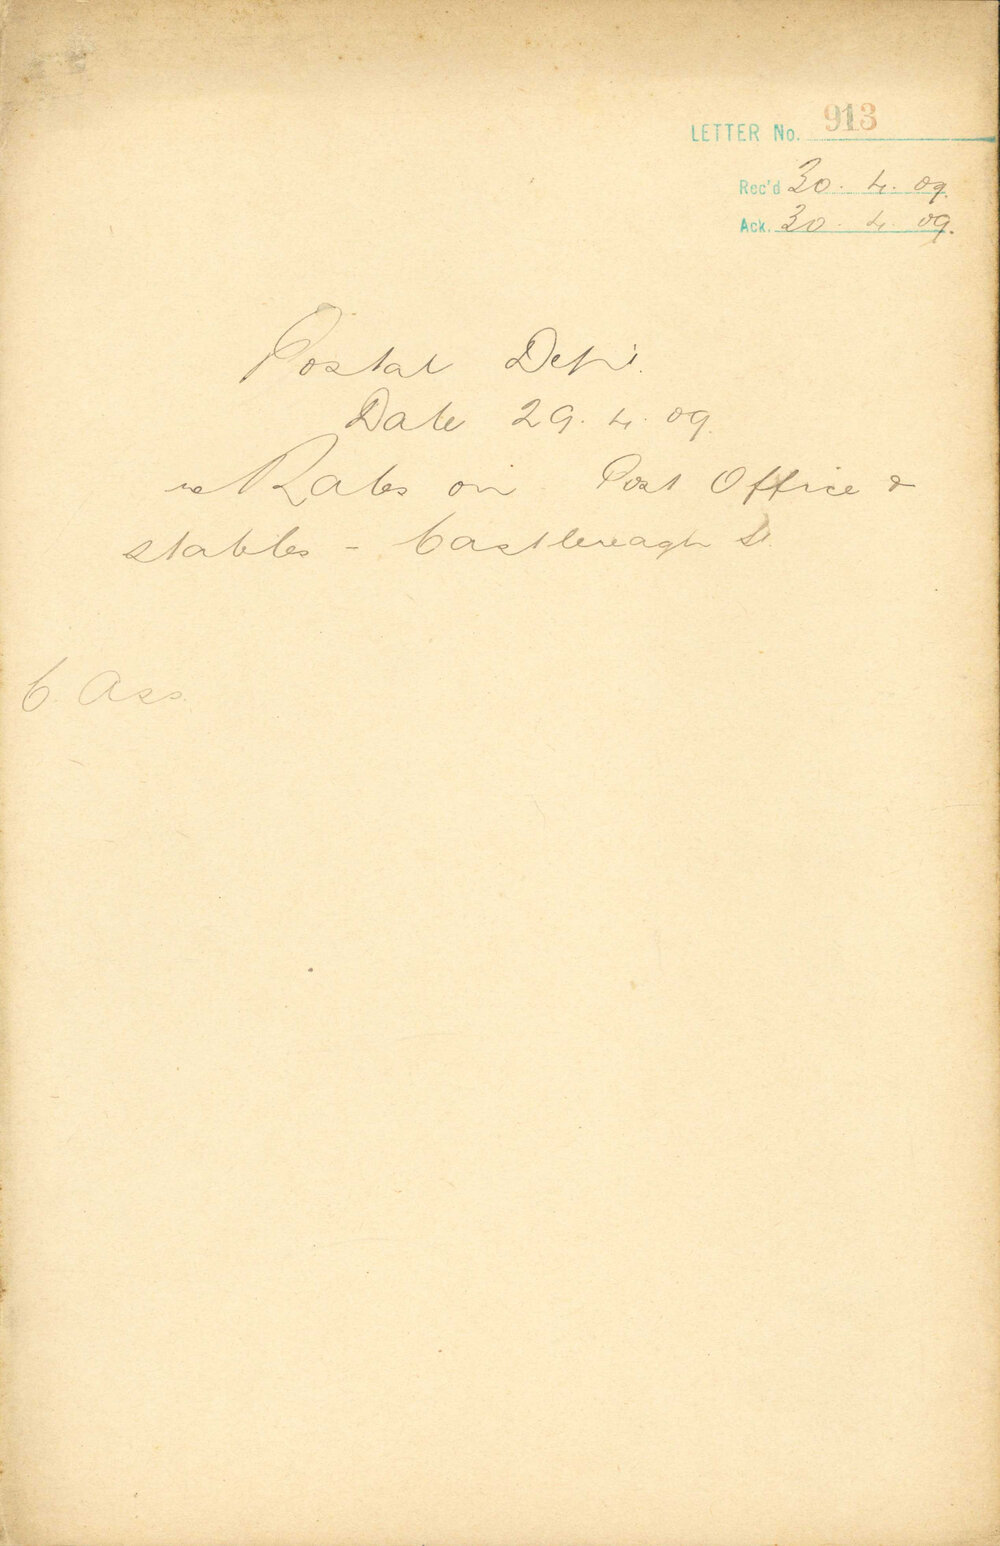 LETTER No. 913
Rec'd 30. 4. 09.
Ack. 30. 4. 09.
Postal Dept.
Date 29. 4. 09.
re Rates on Post Office &
stables - Castlereagh St.
C. Ass.